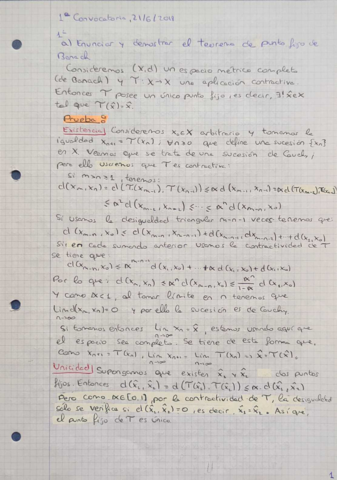 1ª Convocatoria, 21/6/2011
1º
a) Enunciar y demostrar el teorema de punto fijo de
Banach
Consideremos (X,d) un espacio métrico completo
(de Banach) y T: X→X una aplicación contractiva
Entonces T posee un único punto fijo, es decir, ∃! x̂∈X
tal que T(x̂)=x̂.
Prueba:
Existencia) Consideremos x₀∈X arbitrario y tomamos la
igualdad xₙ₊₁ = T(xₙ), ∀n≥0 que define una sucesión {xₙ}
en X. Veamos que se trata de una sucesión de Cauchy,
para ello usaremos que T es contractiva:
Si m>n≥1, tenemos:
d(xₘ,xₙ) = d(T(xₘ₋₁),T(xₙ₋₁)) ≤ α d(xₘ₋₁,xₙ₋₁) = α d(T(xₘ₋₂),T(xₙ₋₂))
≤ α² d(xₘ₋₂,xₙ₋₂) ≤ ··· ≤ αⁿ d(xₘ₋ₙ,x₀)
Si usamos la desigualdad triangular m-n-1 veces tenemos que:
d(xₘ₋ₙ,x₀) ≤ d(xₘ₋ₙ,xₘ₋ₙ₋₁) + d(xₘ₋ₙ₋₁,xₘ₋ₙ₋₂) + ··· + d(x₁,x₀)
Si en cada sumando anterior usamos la contractividad de T
se tiene que:
d(xₘ₋ₙ,x₀) ≤ αᵐ⁻ⁿ⁻¹ d(x₁,x₀) + ··· + α d(x₁,x₀) + d(x₁,x₀)
Por lo que: d(xₘ,xₙ) ≤ αⁿ d(xₘ₋ₙ,x₀) ≤ αⁿ/(1-α) d(x₁,x₀)
Y como α<1, al tomar límite en n tenemos que
Lim d(xₘ,xₙ)=0 y por ello la sucesión es de Cauchy,
n→∞
Si tomamos entonces Lim xₙ = x̂, estamos usando aquí que
n→∞
el espacio sea completo. Se tiene de esta forma que,
Como xₙ₊₁ = T(xₙ), Lim xₙ₊₁ = Lim T(xₙ) ⇒ x̂ = T(x̂).
n→∞ n→∞
Unicidad) Supongamos que existen x̂₁ y x̂₂ dos puntos
fijos. Entonces d(x̂₁,x̂₂) = d(T(x̂₁),T(x̂₂)) ≤ α d(x̂₁,x̂₂)
Pero como α∈[0,1), por la contractividad de T, la desigualdad
sólo se verifica si d(x̂₁,x̂₂)=0, es decir x̂₁=x̂₂. Así que,
el punto fijo de T es único
1